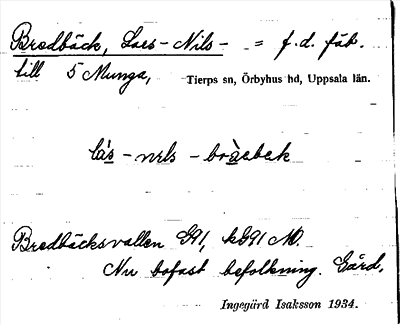 Bredbäck, Lars-Nils- = f.d. fäb.
till 5 Munga, Tierps sn, Örbyhus hd, Uppsala län.
la's - nɩls - bràebɛk
Bredbäcksvallen G91, kG91 M.
Nu bofast befolkning. Gård.
Ingegärd Isaksson 1934.